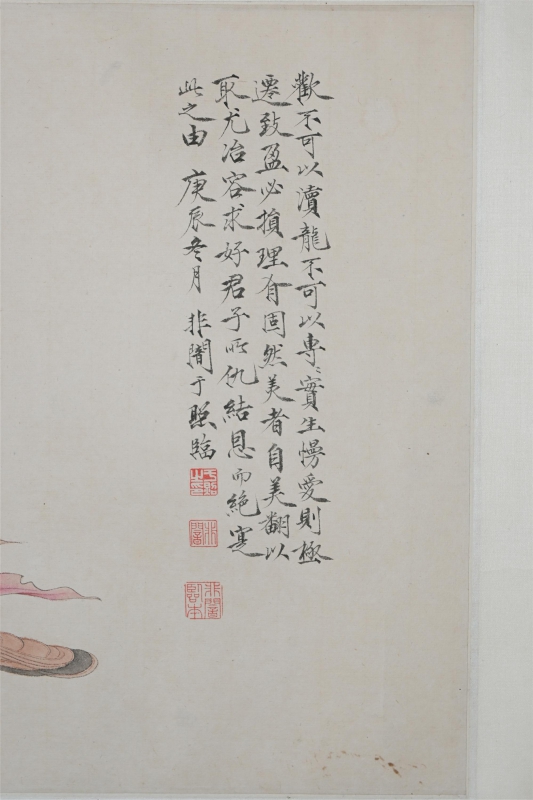 歡不可以瀆龍不可以專〻實生慢愛則極
遷致盈必損理有固然美者自美翻以
取尤冶容求好君子所仇結恩而絕寔
此之由 庚辰冬月 非闇于照臨
于照之印
非闇
非闇臨本